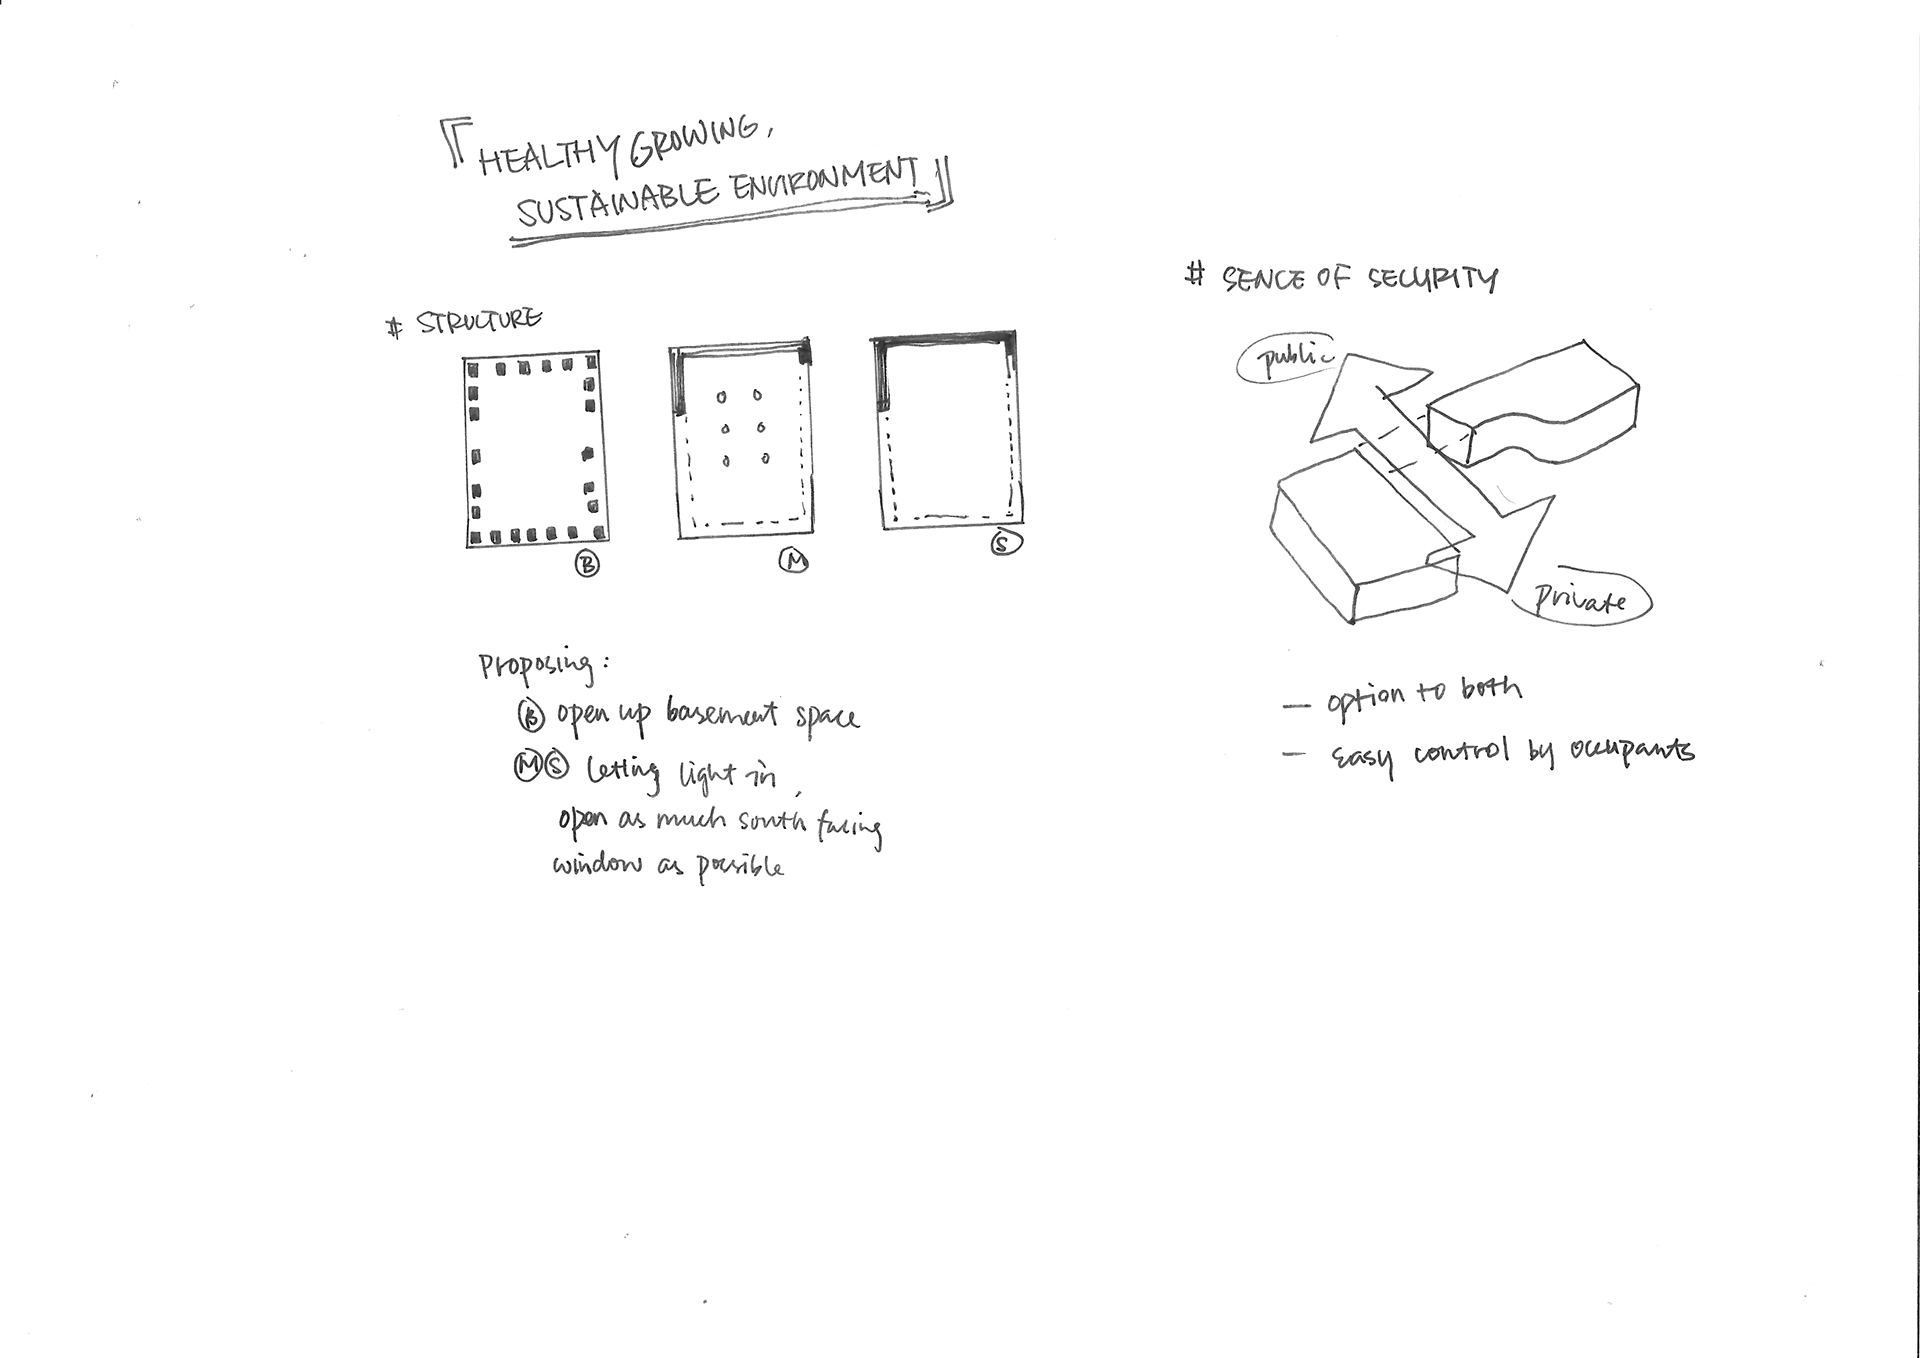 『HEALTHY GROWING,
SUSTAINABLE ENVIRONMENT』
# STRUCTURE
B
M
S
Proposing:
B open up basement space
M S Letting light in,
open as much south facing
window as possible
# SENCE OF SECURITY
public
private
— option to both
— Easy control by occupants